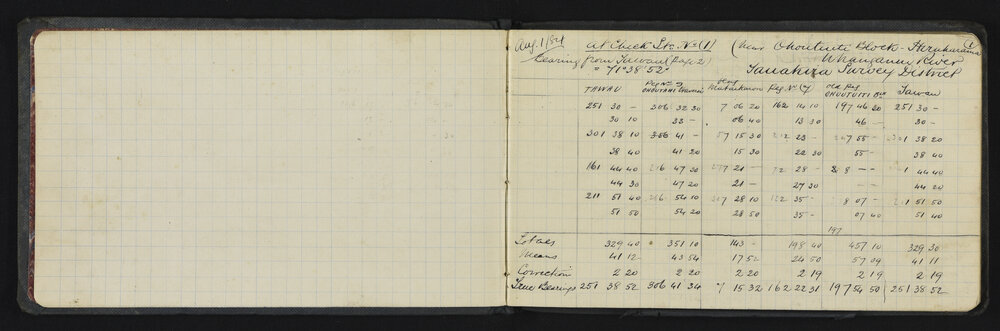 Aug. 1/84 at Check Stn No (1) (near Ohoutuiti Block - Hiruharama 1
Bearing from Tawau (Page 2) Whanganui River
= 71° 38' 52" Tauakira Survey District
TAWAU Peg No 9 OHOUTAHI Old Peg No (7) Old Peg OHOUTUITI Blk Tawau
251 30 - 306 32 30 7 06 20 162 14 10 197 46 20 251 30 -
30 10 33 - 06 40 13 30 46 - 30 -
301 38 10 356 41 - 57 15 30 212 23 - 247 55 - 301 38 20
38 40 41 20 15 30 22 30 55 - 38 40
161 44 40 216 47 30 277 21 - 72 28 - 8 - - 1 44 40
44 30 47 20 21 - 27 30 - - 44 20
211 51 40 266 54 10 28 10 122 35 - 8 07 - 211 51 50
51 50 54 20 28 50 35 - 07 40 51 40
197
Totals 329 40 351 10 143 - 198 40 457 10 329 30
Means 41 12 43 54 17 52 24 50 57 09 41 11
Correction 2 20 2 20 2 20 2 19 2 19 2 19
True Bearings 251 38 52 306 41 34 7 15 32 162 22 31 197 54 50 251 38 52